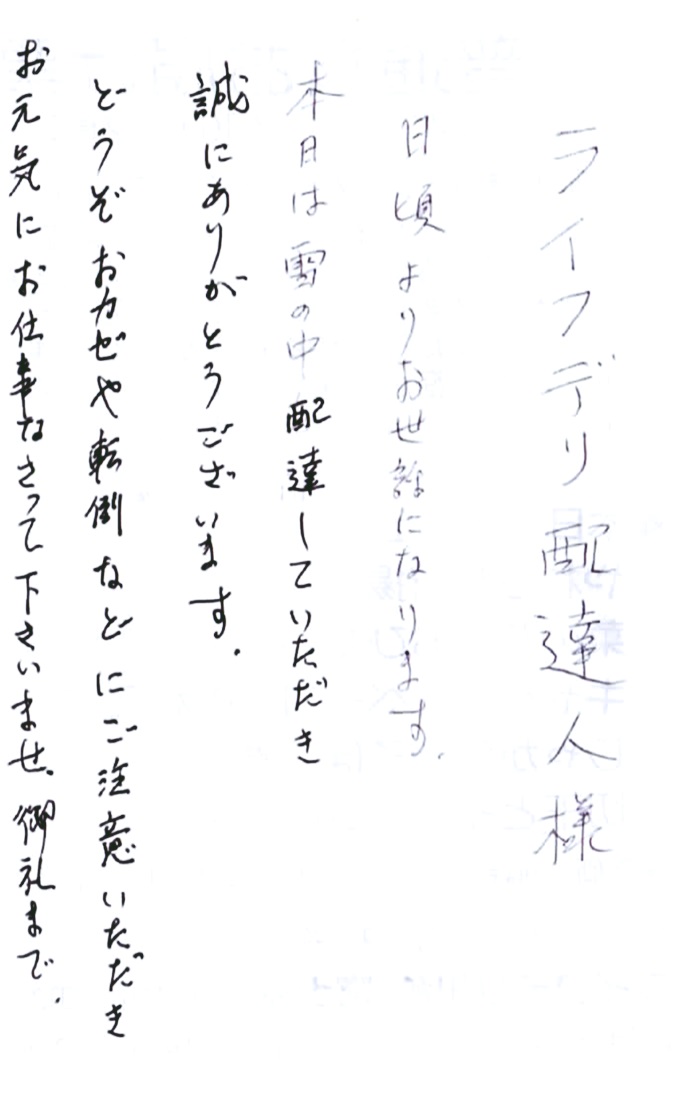 ライフデリ配達人様
日頃よりお世話になります.
本日は雪の中配達していただき
誠にありがとうございます.
どうぞおカゼや転倒などにご注意いただき
お元気にお仕事なさって下さいませ。御礼まで.